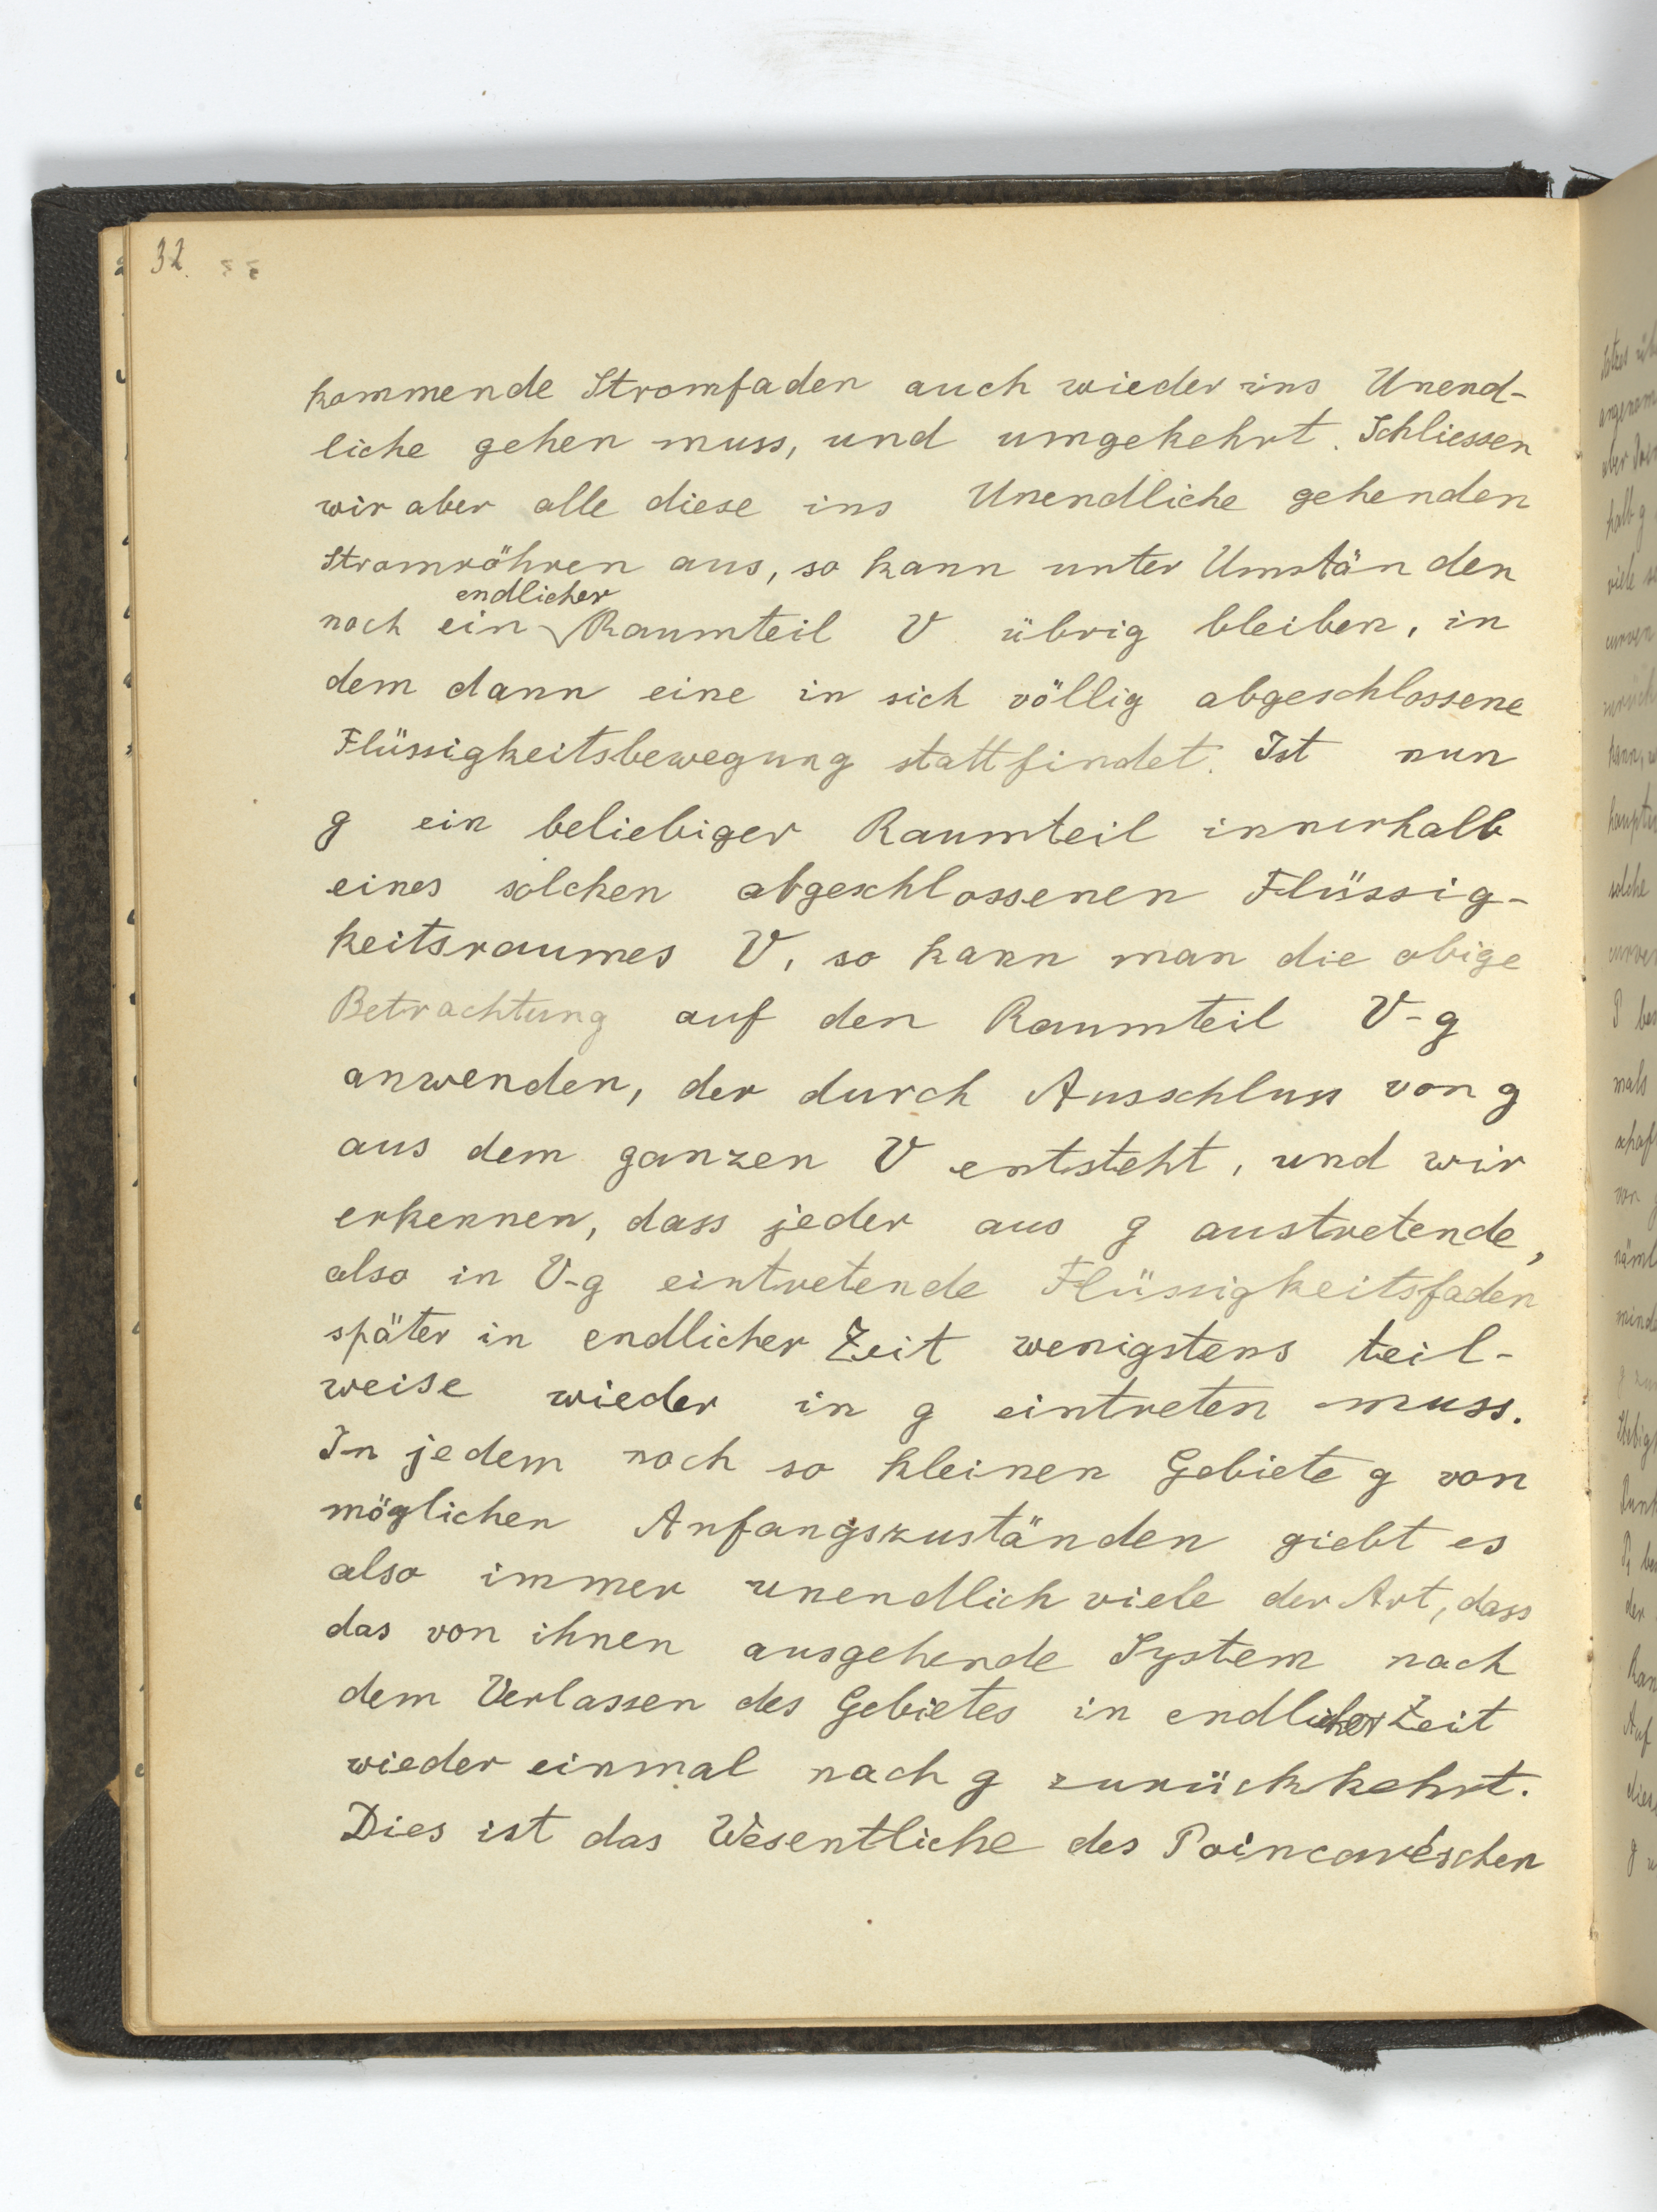 32.
kommende Stromfaden auch wieder ins Unend-
liche gehen muss, und umgekehrt. Schliessen
wir aber alle diese ins Unendliche gehenden
Stromröhren aus, so kann unter Umständen
endlicher
noch ein Raumteil V übrig bleiben, in
dem dann eine in sich völlig abgeschlossene
Flüssigkeitsbewegung stattfindet. Ist nun
g ein beliebiger Raumteil innerhalb
eines solchen abgeschlossenen Flüssig-
keitsraumes V, so kann man die obige
Betrachtung auf den Raumteil V-g
anwenden, der durch Ausschluss von g
aus dem ganzen V entsteht, und wir
erkennen, dass jeder aus g austretende,
also in V-g eintretende Flüssigkeitsfaden
später in endlicher Zeit wenigstens teil-
weise wieder in g eintreten muss.
In jedem noch so kleinen Gebiete g von
möglichen Anfangszuständen giebt es
also immer unendlich viele der Art, dass
das von ihnen ausgehende System nach
dem Verlassen des Gebietes in endlicher Zeit
wieder einmal nach g zurückkehrt.
Dies ist das Wesentliche des Poincaréschen